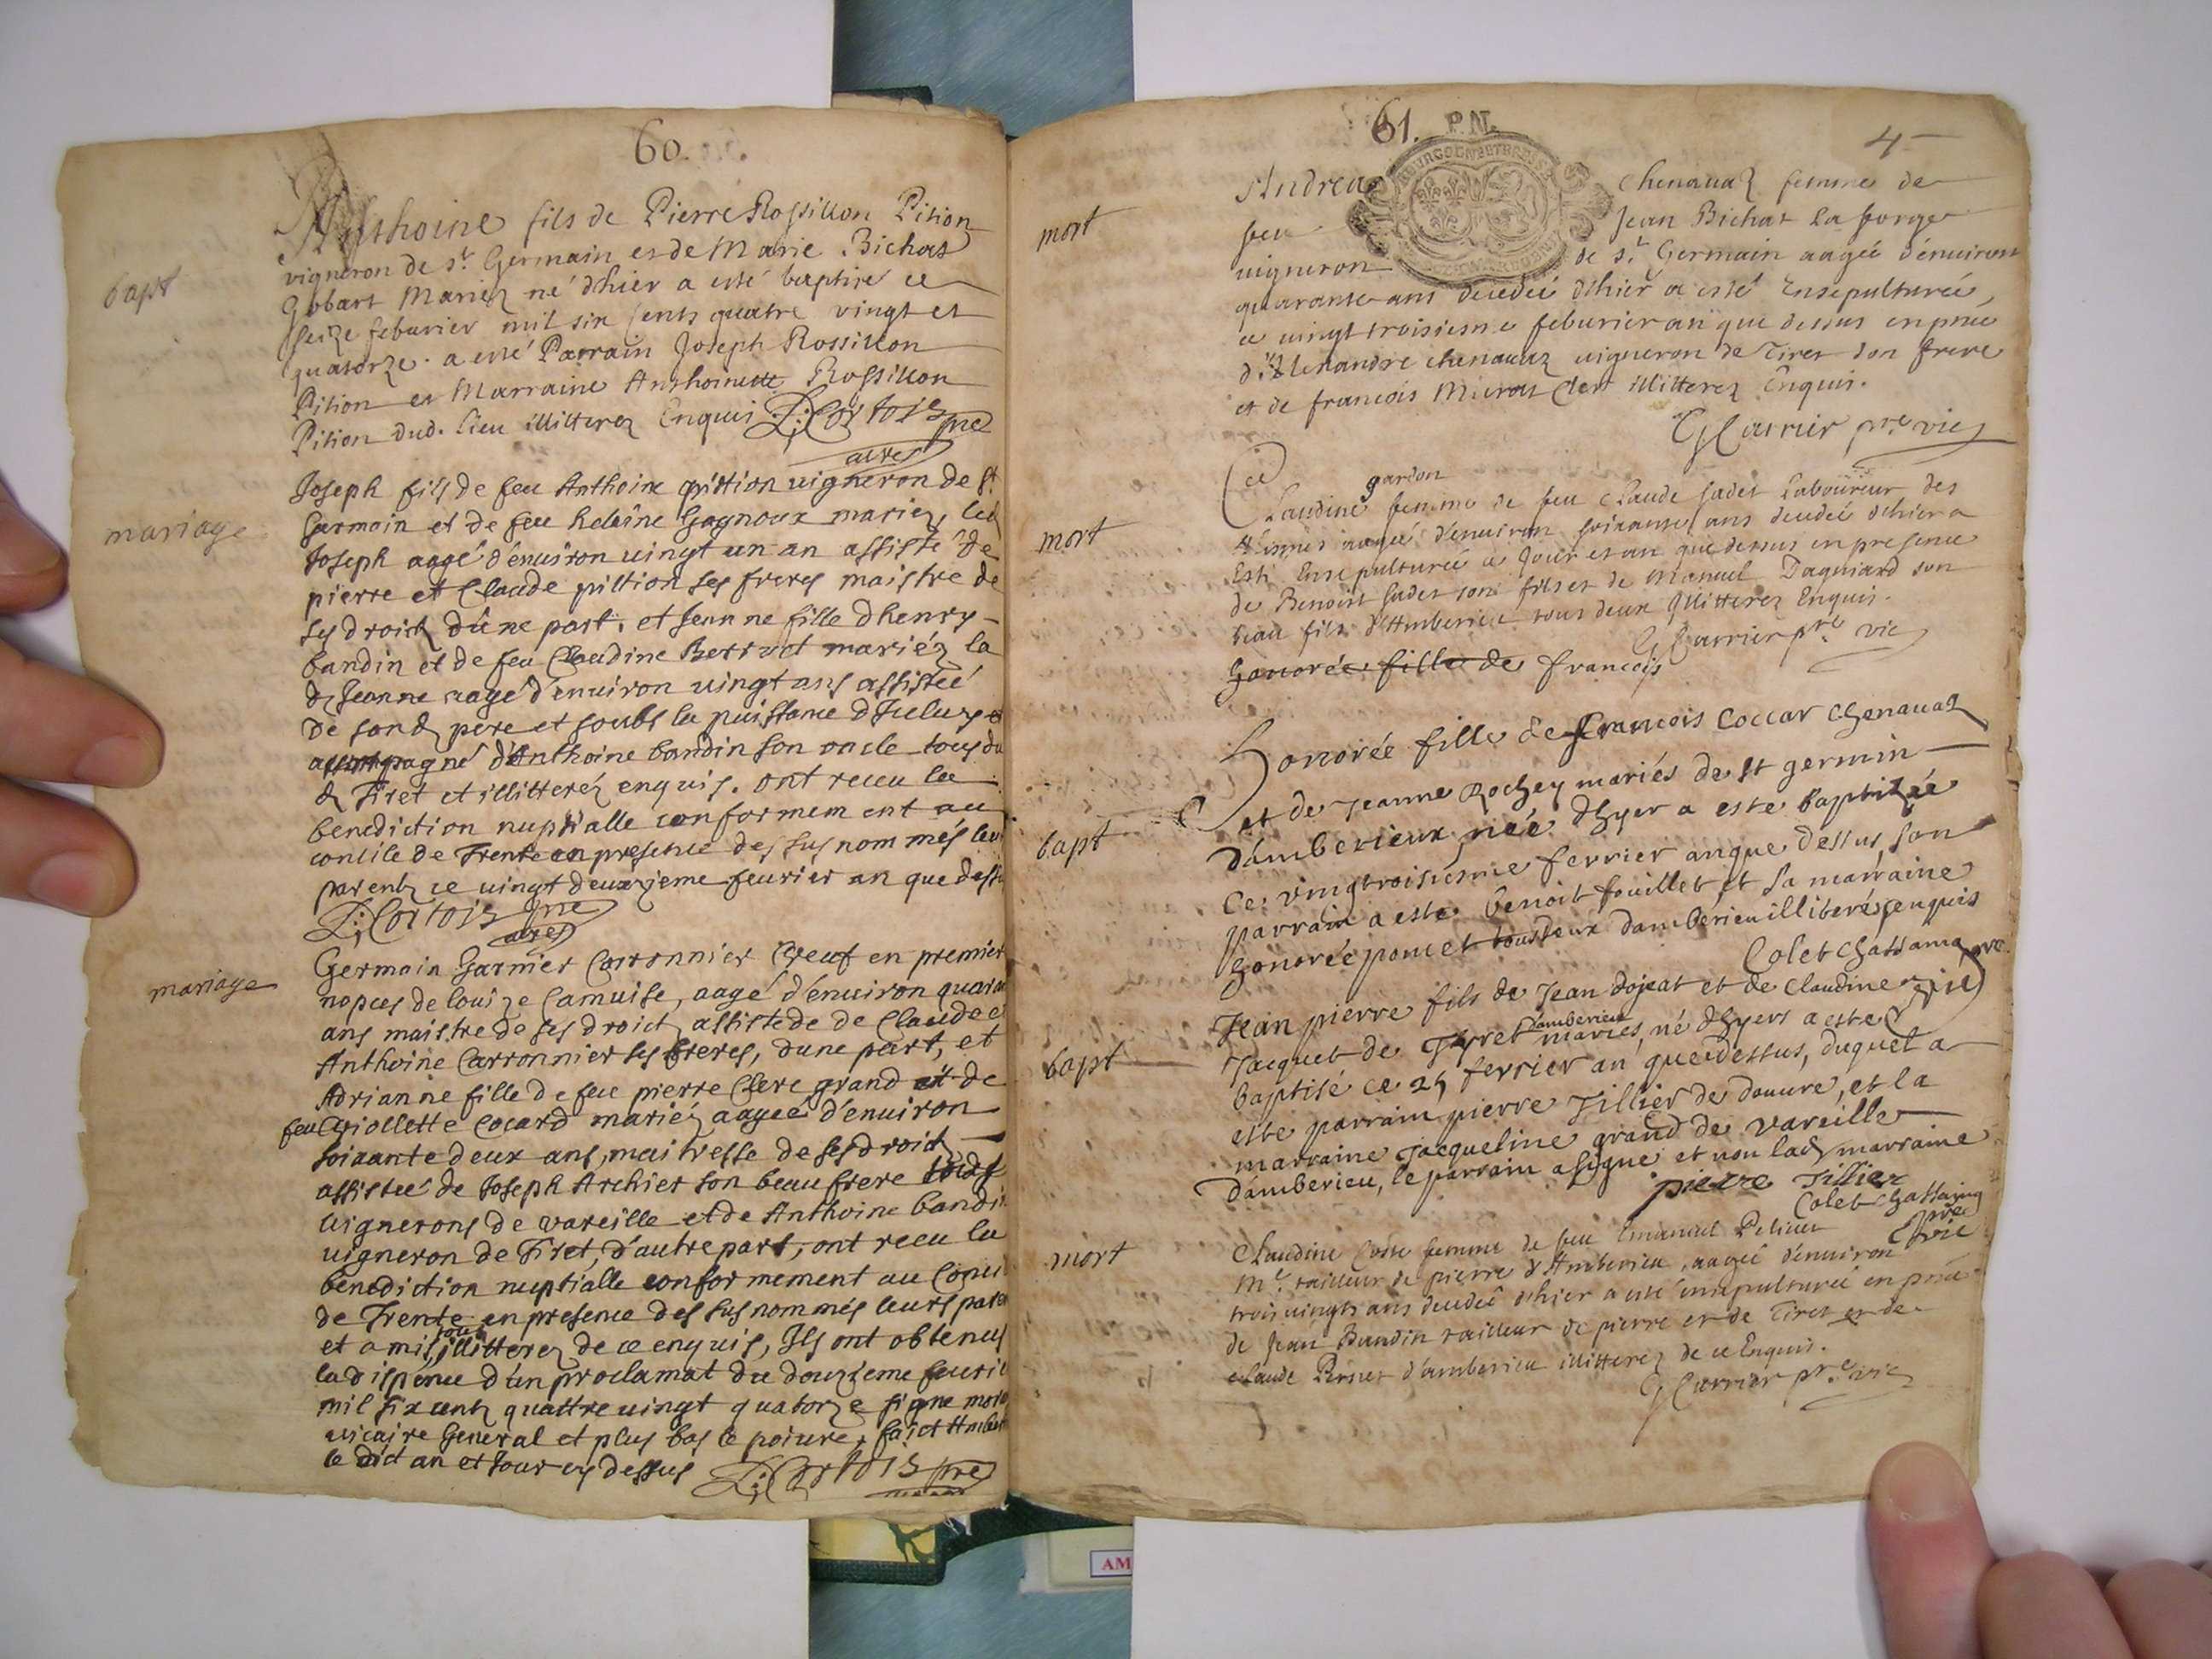 60.
bapt
Anthoine fils de Pierre Rossillon Pition
vigneron de st. Germain et de Marie Bichat
Gobart Mariez né d'hier a esté baptisé ce
seize feburier mil six cents quatre vingt et
quatorze. a esté Parrain Joseph Rossillon
Pition et Marraine Anthoinette Rossillon
Pition dud. lieu illitterez Enquis D: Cortois pre
mariage
Joseph fils de feu Anthoine pittion vigneron de st
Germain et de feu helaine Gagnoux mariez, led
Joseph aagé d'enuiron uingt un an assisté de
pierre et Claude pittion ses freres maistre de
ses droictz d'une part. et Jeanne fille dhenry
bandin et de feu Claudine Berrust mariéz la
d Jeanne aagé d'enuiron uingt ans assisteé
de sond pere et soubs la puissance d'Iceluy et
accompagné d'Anthoine bandin son oncle tous du
d Tiret et illitteréz enquis. ont receu la
benediction nuptialle conformement au
concile de Trente en presence des sus nommés leurs
parentz ce uingt deuxzieme feurier an que dessus
D: Cortois pre
mariage
Germain Garnier Carronnier Veuf en premier
nopces de louize Camuise, aagé d'enuiron quaran
ans maistre de ses droictz assistede de Claude et
Anthoine Carronnier ses freres, dune part, et
Adrianne fille de feu pierre Clerc grand et de
feu Viollette Cocard mariéz aageé d'enuiron
soixante deux ans, maitresse de ses droictz
assisteé de Joseph Archier son beau frere
uignerons de vareille et de Anthoine bandin
uigneron de Tiret, d'autre part, ont receu la
benediction nuptialle conformement au Conci
de Trente en presence des susnommés leurs paren
et amis, tous illitterez de ce enquis, Ils ont obtenus
la dispence d'un proclamat du douzieme feurie
mil six centz quattre uingt quatorze signe moro
uicaire General et plus bas le poiure, faict Amber
le dict an et Jour cy dessus D: Cortois pre
61.
P.N.
4
mort
Andrea Chenauaz femme de
feu Jean Bichat la forge
uigneron de st. Germain aageé d'enuiron
quarante ans decedeé d'hier a esté Ensepultureé,
ce uingt troisiesme feburier an que dessus en pnce
d'Alexandre chenauaz uigneron de Tiret son frere
et de francois Mivrat Clerc illitterez Enquis.
G Carrier pre. vic
mort
gardon
Claudine femme de feu Claude Jadet Laboureur des
aageé d'enuiron soixante ans decedeé d'hier a
esté Ensepultureé ce Jour et an que dessus en presence
de Benoist Jadet son fils et de Manuel Dagniard son
beau fils d'Amberieu tous deux Illitterez Enquis.
G Carrier pre. vic
honorée fille de francois
bapt
honorée fille de francois Coccar Chenauaz
et de Jeanne Rochey mariés de st germin
d'amberieux néé d'hyer a este baptizéé
ce vingtroisiesme ferrier anque dessus, son
parrain a este benoit fouillet, et sa marraine
honorée poncet tous deux damberieu illiterés, enquis
Colet Chattaing pre
vic
bapt
Jean pierre fils de Jean dojeat et de Claudine
Jacquet de Tyret d'amberieu mariés, né d'hyers a este
baptisé ce 25 ferrier an que dessus, duquel a
este parrain pierre Tillier de douure, et la
marraine Jacqueline grand de vareille
d'amberieu, le parrain a signé et non lad marraine
pierre Tillier
Colet Chattaing pre
vic
mort
Claudine Coste femme de feu Emanuel Pelicet
Me. tailleur de pierre d'Amberieu, aageé d'enuiron
trois uingts ans decedeé d'hier a esté ensepultureé en pnce
de Jean Bandin tailleur de pierre et de Tiret et de
claude Perret d'amberieu illitterez de ce Enquis.
G Carrier pre. vic
AM